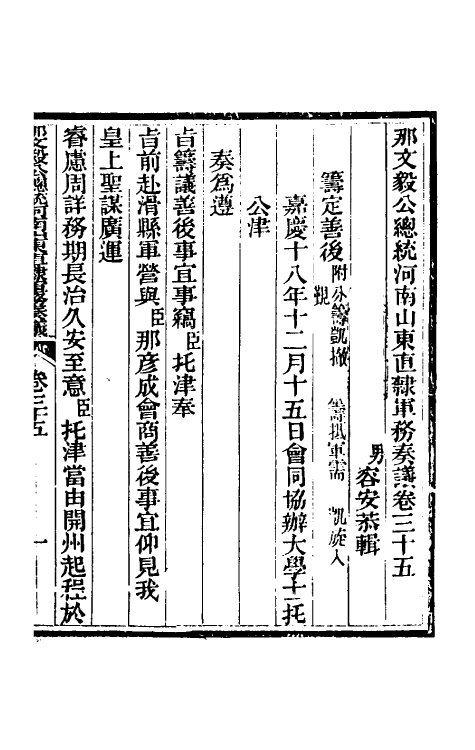 那文毅公總統河南山東直隸軍務奏議卷三十五
男容安恭輯
籌定善後附分籌凱撤 籌撥軍需 凱旋入覲
嘉慶十八年十二月十五日會同協辦大學士托
公津
奏爲遵
旨籌議善後事宜事竊臣托津奉
旨前赴滑縣軍營與臣那彥成會商善後事宜仰見我
皇上聖謀廣運
睿慮周詳務期長治久安至意臣托津當由開州起程於
那文毅公總統河南山東直隸軍務奏議 卷三十五 一